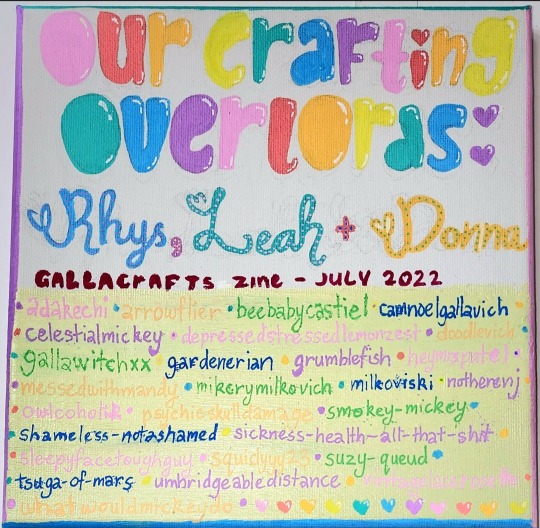 OUR CRAfting
OVERlORds:
Rhys, Leah + Donna
GALLACRAFTS ZINE - JULY 2022
• adakechi • arrowflier • beebabycastiel • camnoelgallavich
celestialmickey • depressedstressedlemonzest • doodlevich •
gallawitchxx • gardenerian • grumblefish • heymrspatel •
messedwithmandy • mikerymilkovich • milkoviski • notherenj
owlcoholik • psychicskulldamage • smokey-mickey •
• shameless-notashamed • sickness-health-all-that-shit •
• sleepyfacetoughguy • squidyyy23 • suzy-queud •
• tsuga-of-mars • umbridgeabledistance •
whatwouldmickeydo